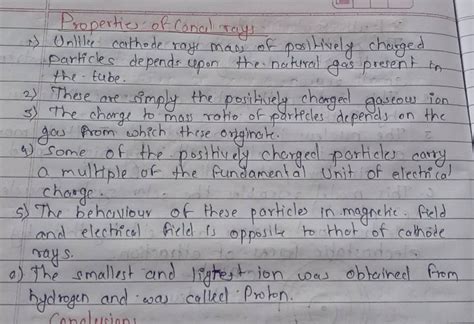 Properties of Canal rays
1) Unlike cathode rays mass of positively charged
particles depends upon the natural gas present in
the tube.
2) These are simply the positively charged gaseous ion
3) The charge to mass ratio of particles depends on the
gas from which these originate.
4) Some of the positively charged particles carry
a multiple of the fundamental unit of electrical
charge.
5) The behaviour of these particles in magnetic field
and electrical field is opposite to that of cathode
rays.
6) The smallest and lightest ion was obtained from
hydrogen and was called Proton.
Conclusions